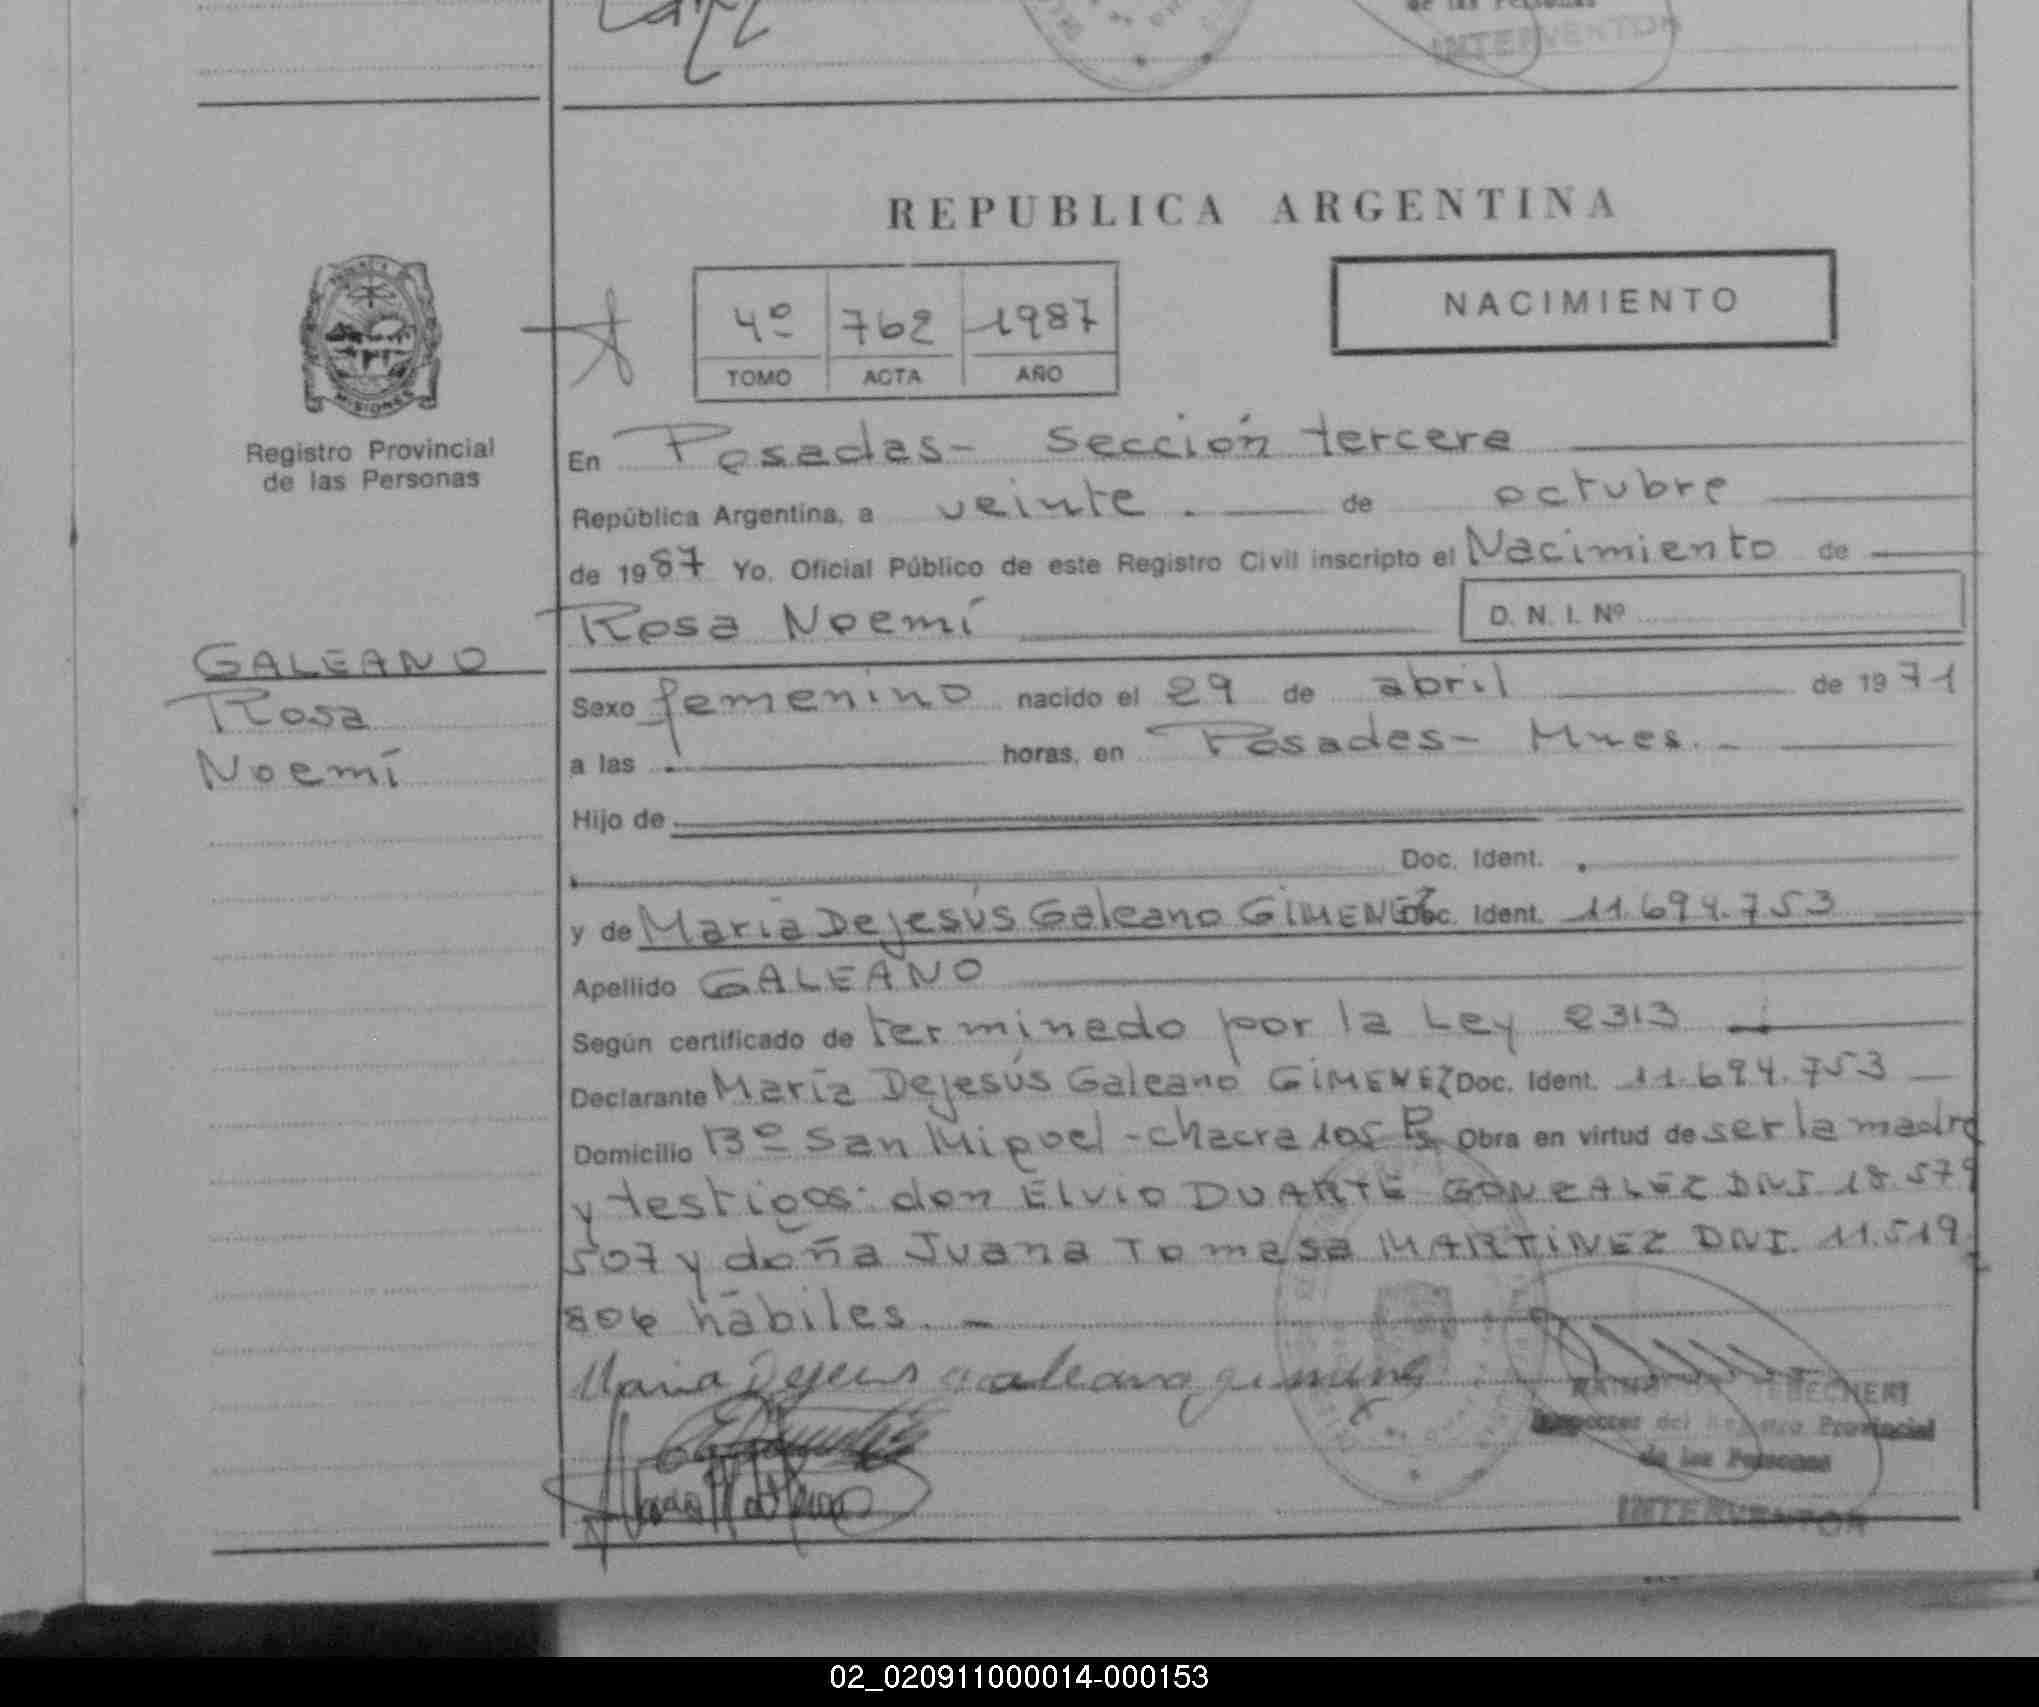 de las Personas
INTERVENTOR
REPUBLICA ARGENTINA
4º 762 1987
TOMO ACTA AÑO
NACIMIENTO
MISIONES
Registro Provincial
de las Personas
En Posadas- Sección tercera
República Argentina, a veinte. de octubre
de 1987 Yo, Oficial Público de este Registro Civil inscripto el Nacimiento de
Rosa Noemí
D. N. I. Nº
GALEANO
Rosa
Noemí
Sexo femenino nacido el 29 de abril de 1971
a las horas, en Posadas- Mnes.-
Hijo de
Doc. Ident.
y de María Dejesús Galeano GIMENEZ Doc. Ident. 11.694.753
Apellido GALEANO
Según certificado de terminado por la Ley 2313
Declarante María Dejesús Galeano GIMENEZ Doc. Ident. 11.694.753
Domicilio Bº San Miguel - chacra 105 Ps Obra en virtud de ser la madre
y testigos: don Elvio DUARTE GONZALEZ DNI. 18.579
507 y doña Juana Tomasa MARTINEZ DNI. 11.519.
806 hábiles.-
Maria Dejesus Galeano gimenez
Inspector del Registro Provincial
de las Personas
INTERVENTOR
02_020911000014-000153